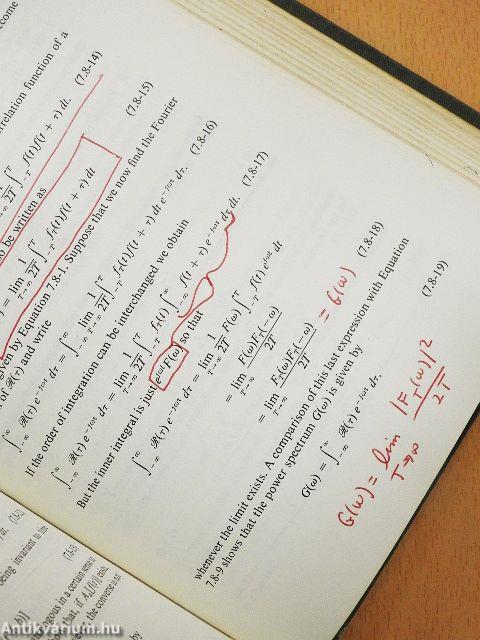 come
relation function of a
lim 1/2T ∫_{-T}^{T} f(t)f(t + τ) dt. (7.8-14)
o be written as
= lim_{T→∞} 1/2T ∫_{-T}^{T} f_T(t)f(t + τ) dt (7.8-15)
given by Equation 7.8-1. Suppose that we now find the Fourier
of ℛ(τ) and write
∫_{-∞}^{∞} ℛ(τ) e^{-jωτ} dτ = ∫_{-∞}^{∞} lim_{T→∞} 1/2T ∫_{-T}^{T} f_T(t)f(t + τ) dt e^{-jωτ} dτ. (7.8-16)
If the order of integration can be interchanged we obtain
∫_{-∞}^{∞} ℛ(τ) e^{-jωτ} dτ = lim_{T→∞} 1/2T ∫_{-T}^{T} f_T(t) ∫_{-∞}^{∞} f(t + τ) e^{-jωτ} dτ dt. (7.8-17)
But the inner integral is just e^{jωt}F(ω) so that
∫_{-∞}^{∞} ℛ(τ) e^{-jωτ} dτ = lim_{T→∞} 1/2T F(ω) ∫_{-T}^{T} f(t) e^{jωt} dt
= lim_{T→∞} F(ω)F_T(-ω)/2T
= lim_{T→∞} F_T(ω)F_T(-ω)/2T = G(ω) (7.8-18)
whenever the limit exists. A comparison of this last expression with Equation
7.8-9 shows that the power spectrum G(ω) is given by
G(ω) = ∫_{-∞}^{∞} ℛ(τ) e^{-jωτ} dτ. (7.8-19)
G(ω) = lim_{T→∞} |F_T(ω)|²/2T
being invariant to the
ogous in a certain sense to
that, if
the converse is not
by
Antikvárium.hu